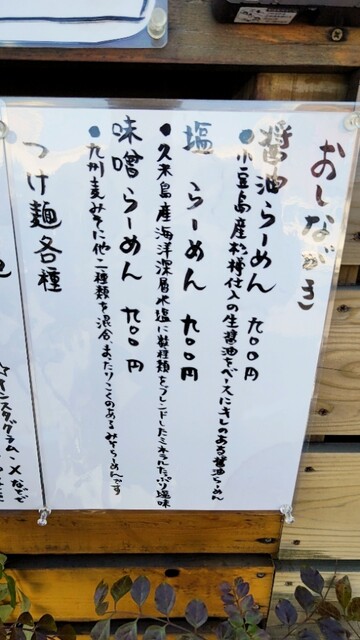 おしながき
醤油らーめん 九〇〇円
●小豆島産杉樽仕入の生醤油をベースにキレのある醤油らーめん
塩らーめん 九〇〇円
●久米島産海洋深層水塩に数種類をブレンドしたミネラルたっぷり塩味
味噌らーめん 九〇〇円
●九州麦みそに他二種類を混合、まったりこくのあるみそらーめんです
つけ麺各種
☆インスタグラム、Xなどで